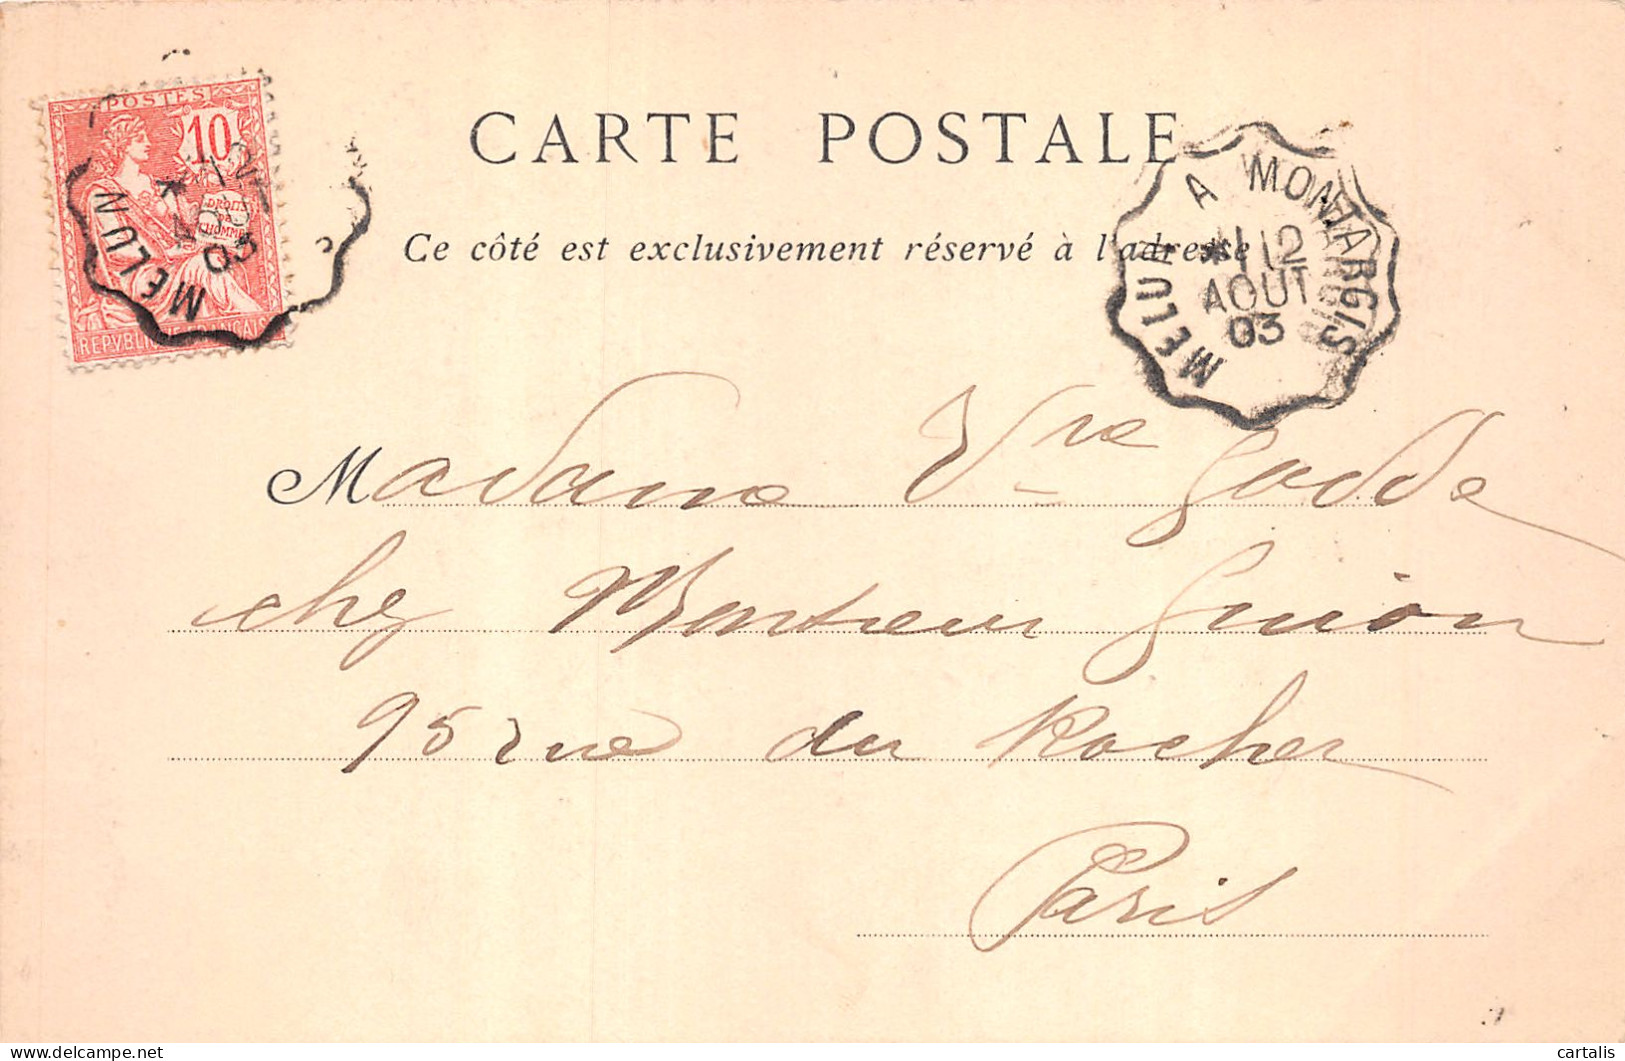 CARTE POSTALE
Ce côté est exclusivement réservé à l'adresse
POSTES
10
DROITS
DE
L'HOMME
REPVBLIQUE FRANÇAISE
MELUN
03
MELUN A MONTARGIS
* 12
AOUT
03
Madame Vve Godde
chez Monsieur Guion
95 rue du Rocher
Paris
cartalis